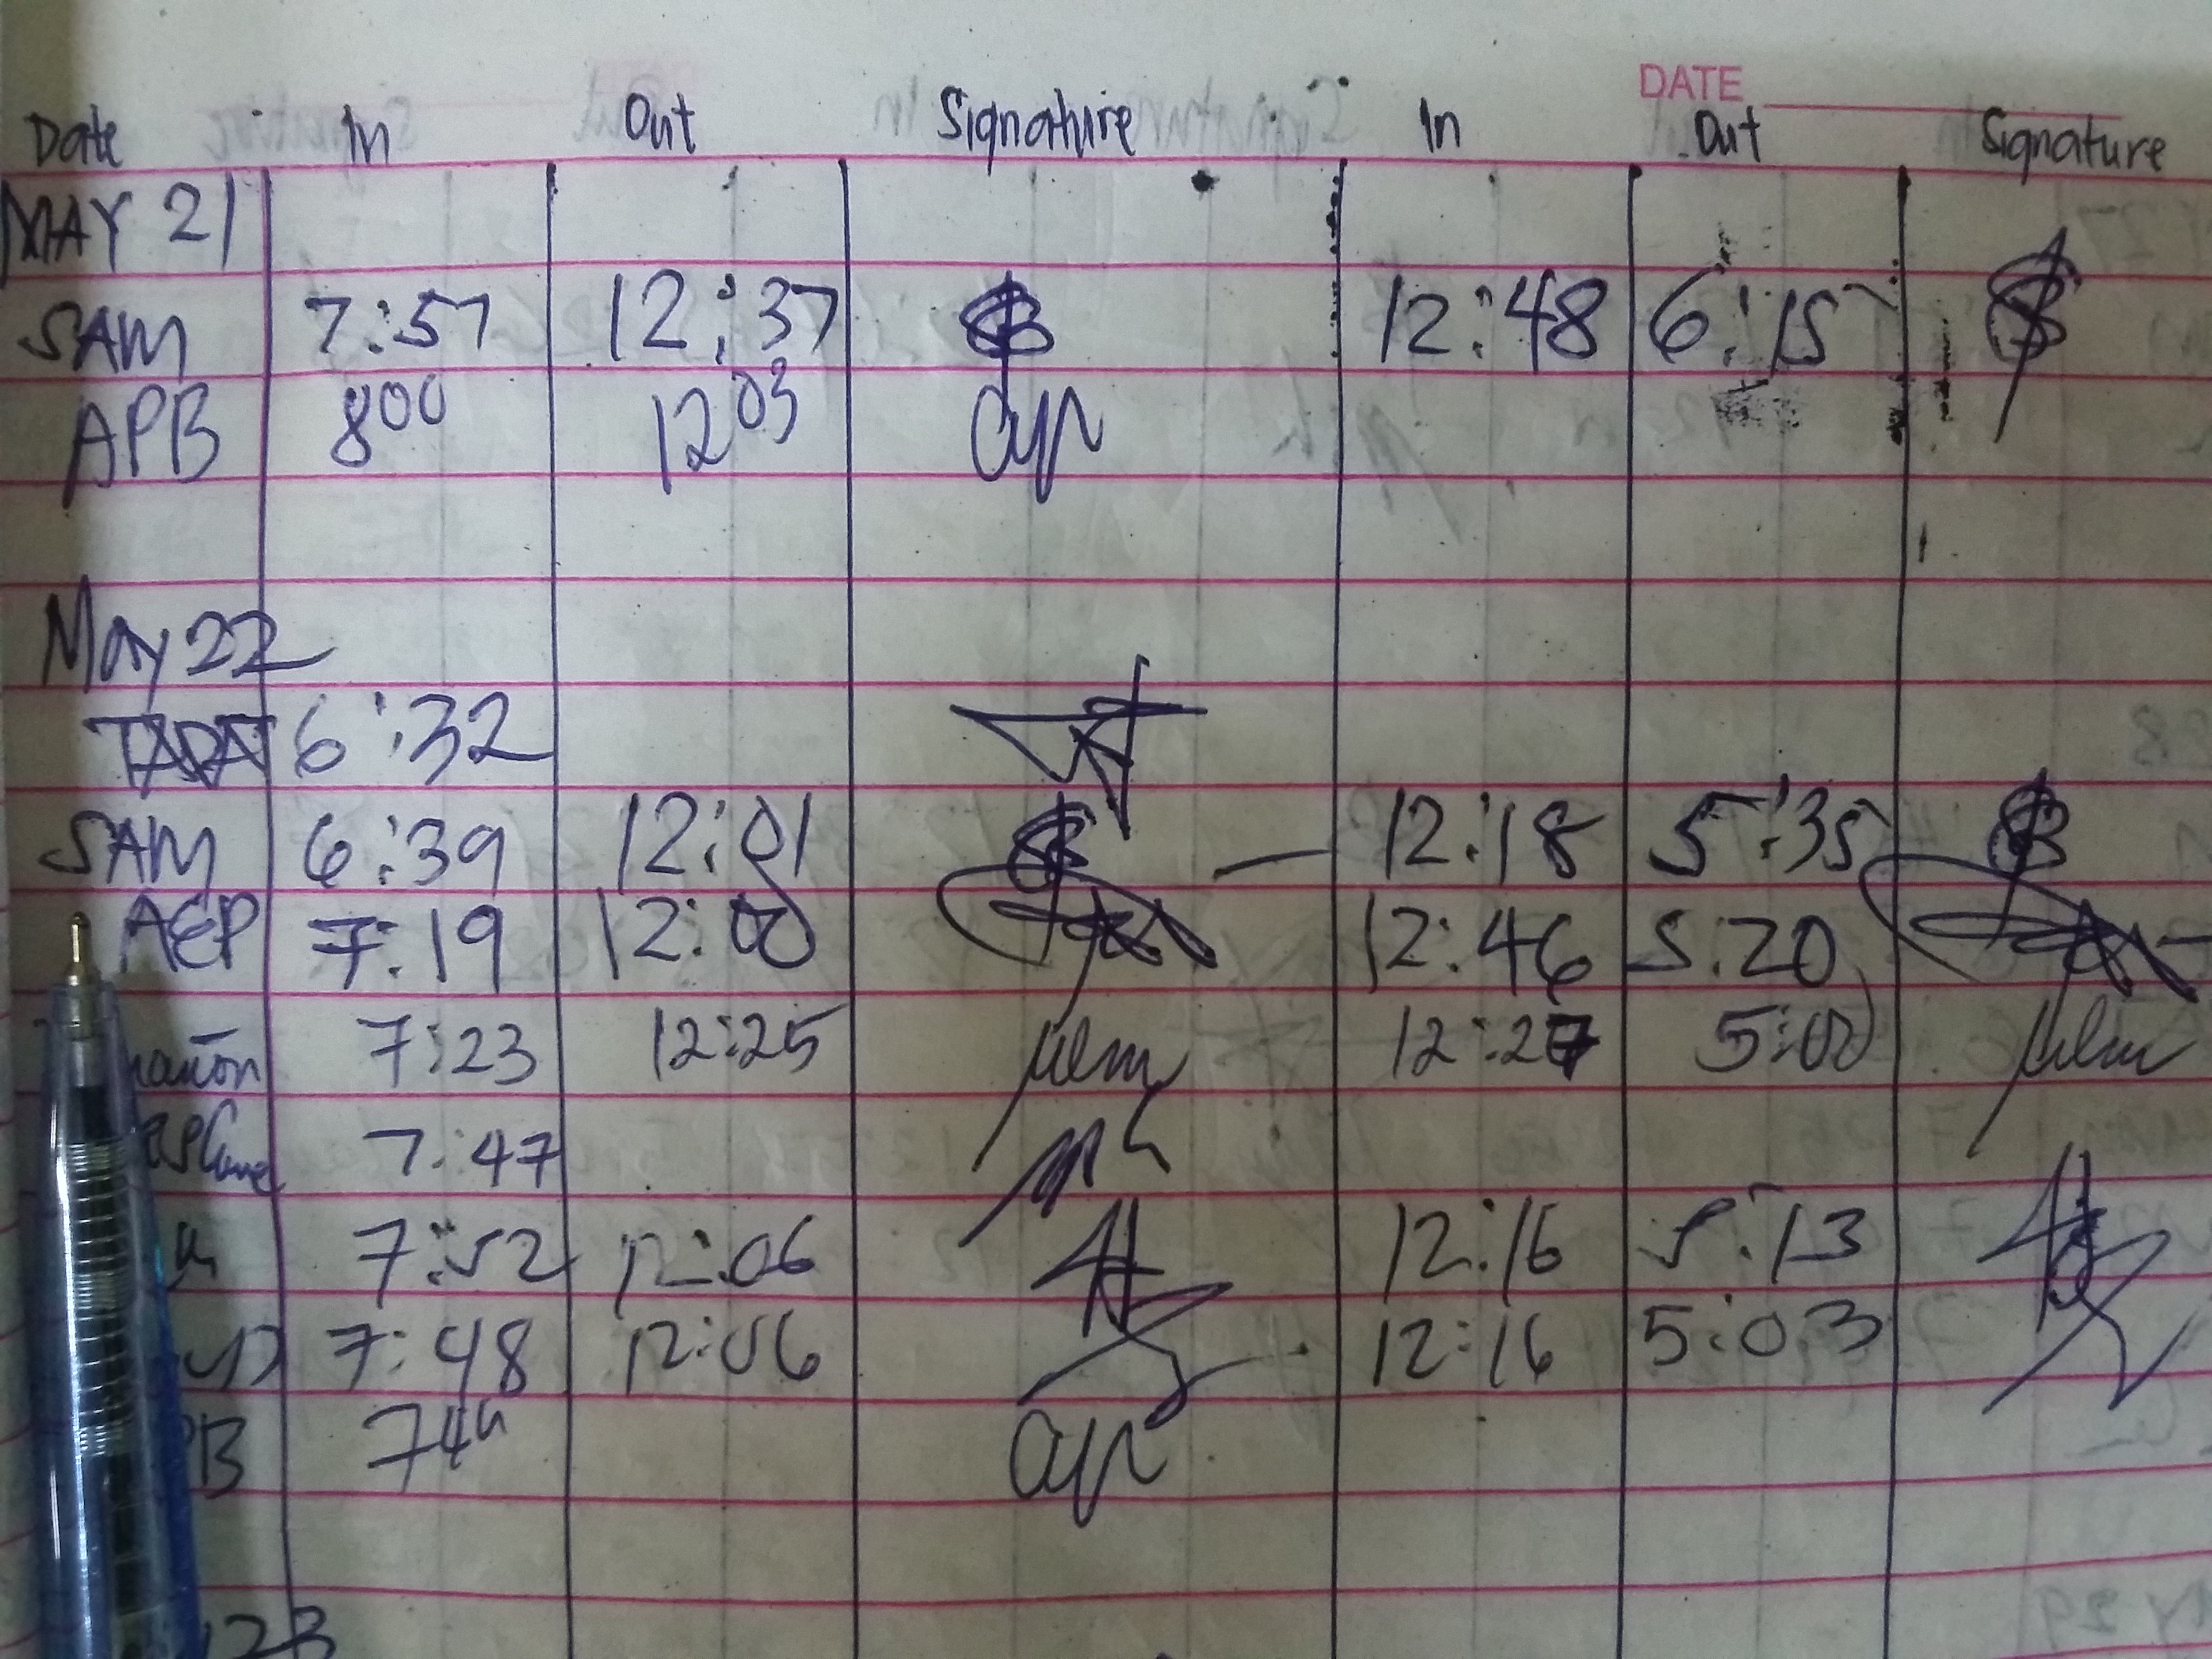 DATE
Date In Out Signature In Out Signature
MAY 21
SAM 7:57 12:37 12:48 6:15
APB 800 1203
May 22
6:32
SAM 6:39 12:01 12:18 5:35
AEP 7:19 12:00 12:46 5:20
7:23 12:25 12:27 5:00
7:47
7:52 12:06 12:16 5:13
7:48 12:06 12:16 5:03
B
23